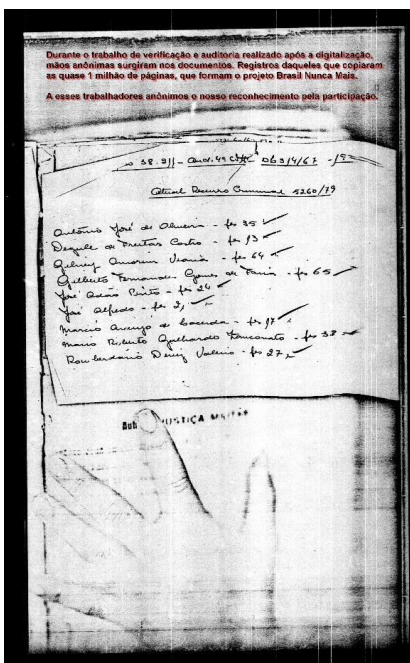 Durante o trabalho de verificação e auditoria realizado após a digitalização,
mãos anônimas surgiram nos documentos. Registros daqueles que copiaram
as quase 1 milhão de páginas, que formam o projeto Brasil Nunca Mais.
A esses trabalhadores anônimos o nosso reconhecimento pela participação.
38.211 - Aud. 4ª CJM
Atual Recurso Criminal 5260/79
Antônio José de Oliveira - fs 35
de Freitas Castro - fs 13
Gilney Amorim Viana - fs 64
Gilberto Fernandes Gomes de Faria - fs 65
José Adão Pinto - fs 24
José Alfredo - fs 21
Marcio Araujo de Lacerda - fs 17
Mario Roberto Galhardo Zanconato - fs 38
Deniz - fs 27
JUSTIÇA MILITAR